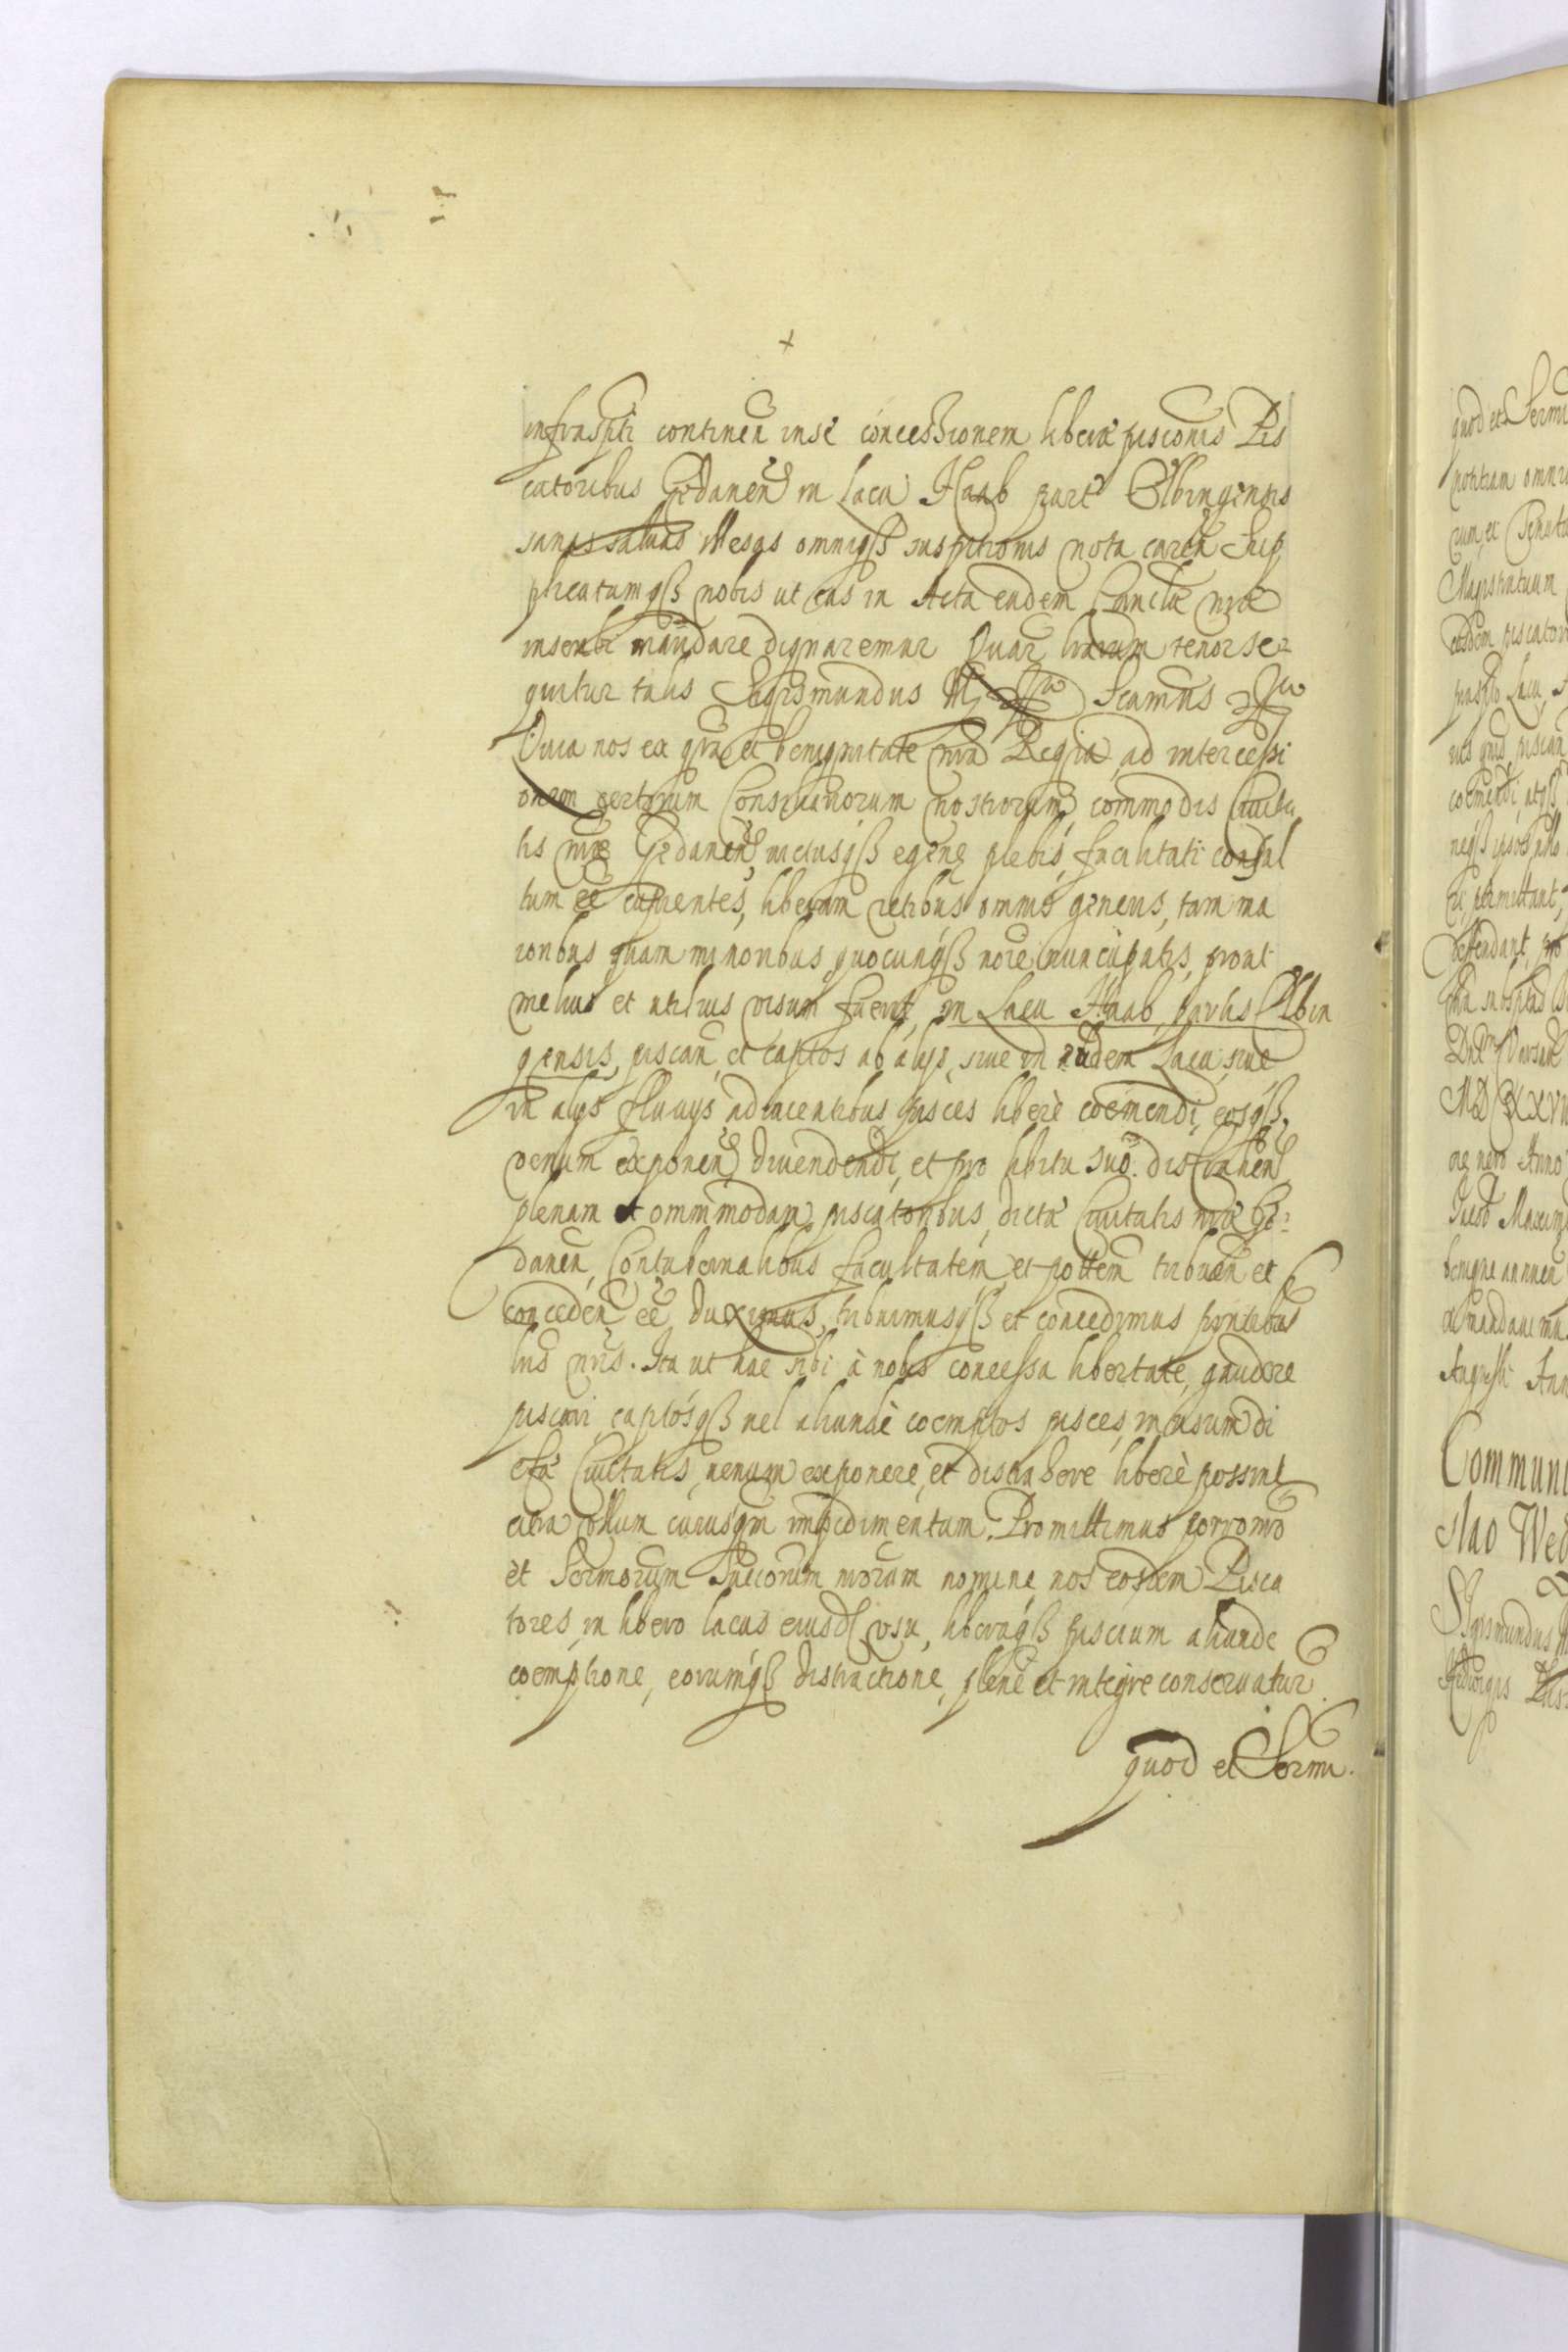 infrascpti continen in se concessionem liberae pisconis Pis
catoribus Gedanen in Lacu Haab part Elbingensis
sanas saluas illesas omniqß suspitionis nota caren Sup
plicatumqß nobis ut eas in Acta eadem Cancellae nrae
inscribi mandare dignaremur Quar lrarum tenor se=
quitur talis Sigismundus III Significamus
Quia nos ex gra et benignitate nra Regia, ad intercessi
onem certorum Consiliariorum nostrorum, commodis Ciuita
tis nrae Gedanen, victusqß egenę plebis, facilitati consul
tum ee cupientes, liberam retibus omnis generis, tam ma
ioribus quam minoribus, quocunqß noie nuncupatis, prout
melius et utilius visum fuerit, in Lacu Haab, partis Elbin
gensis, piscan, et captos ab alijs, siue in eodem Lacu, siue
in alijs fluuijs adiacentibus pisces liberè coemendi, eosqß
venum exponen, diuendendi, et pro libitu suo distrahen
plenam et omnimodam piscatoribus, dictae Ciuitatis nrae Ge=
danen, Contubernalibus facultatem, et pottem tribuen et
conceden ee duximus, tribuimusqß et concedimus pntibus
lris nris. Ita ut hac sibi à nobis concessa libertate, gaudere
piscari, captosqß vel aliundè coemptos pisces, in usum di
ctae Ciuitatis, venum exponere, et distrahere liberè possint
citra ullum cuiusqm impedimentum. Promittimus porro nro
et Sermorum Succorum nrorum nomine, nos eosdem Pisca
tores, in libero lacus eiusd vsu, liberaqß piscium aliunde
coemptione, eorumqß distractione, plenè et integre conseruatur
quod et Sermi.
quod et Sermi
notitiam omniu
Magistratuum
eosdem piscator
Lacu
piscan
coemendi
permittant,
defendant, pro
MDCXXVII
vero Anno
benigne annuen
mandauimus
Augusti Ann
Communi
slao Wed
Sigismundus